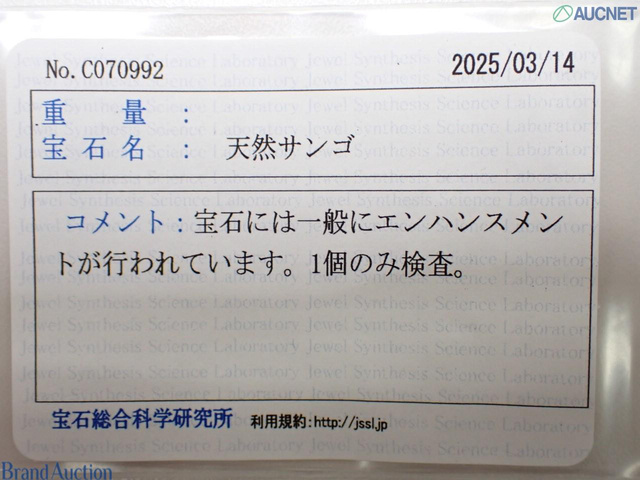 AUCNET
No.C070992 2025/03/14
重 量 :
宝 石 名 : 天然サンゴ
コメント:宝石には一般にエンハンスメン
トが行われています。1個のみ検査。
宝石総合科学研究所 利用規約:http://jssl.jp
Brand Auction
Jewel Synthesis Science Laboratory